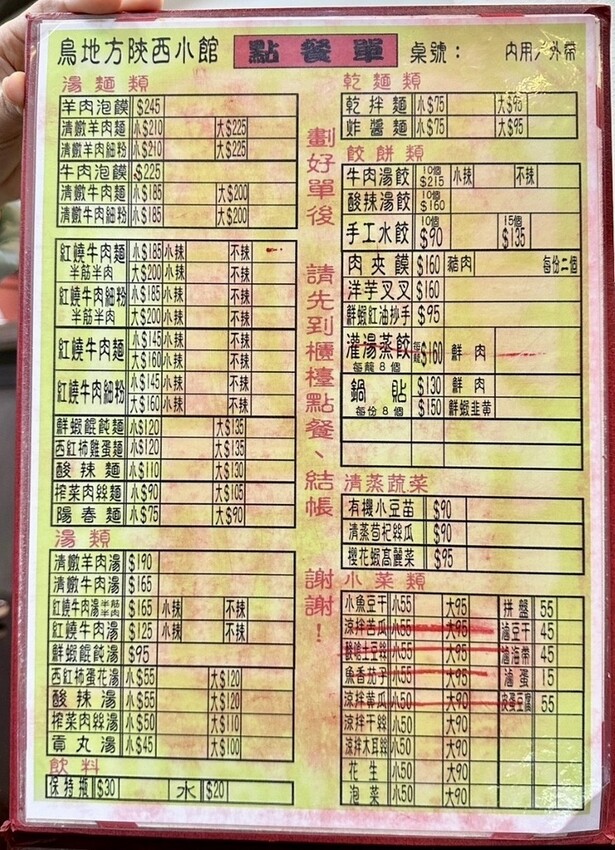 鳥地方陝西小館 點餐單 桌號： 內用／外帶
湯麵類
羊肉泡饃 $245
清燉羊肉麵 小$210 大$225
清燉羊肉細粉 小$210 大$225
牛肉泡饃 $225
清燉牛肉麵 小$185 大$200
清燉牛肉細粉 小$185 大$200
紅燒牛肉麵 半筋半肉 小$185 小辣 不辣
大$200 小辣 不辣
紅燒牛肉細粉 半筋半肉 小$185 小辣 不辣
大$200 小辣 不辣
紅燒牛肉麵 小$145 小辣 不辣
大$160 小辣 不辣
紅燒牛肉細粉 小$145 小辣 不辣
大$160 小辣 不辣
鮮蝦餛飩麵 小$120 大$135
西紅柿雞蛋麵 小$120 大$135
酸辣麵 小$110 大$130
搾菜肉絲麵 小$90 大$105
陽春麵 小$75 大$90
湯類
清燉羊肉湯 $190
清燉牛肉湯 $165
紅燒牛肉湯 半筋半肉 $165 小辣 不辣
紅燒牛肉湯 $125 小辣 不辣
鮮蝦餛飩湯 $95
西紅柿蛋花湯 小$55 大$120
酸辣湯 小$55 大$120
搾菜肉絲湯 小$50 大$110
貢丸湯 小$45 大$100
飲料
保特瓶 $30 水 $20
劃好單後 請先到櫃檯點餐、結帳 謝謝！
乾麵類
乾拌麵 小$75 大$95
炸醬麵 小$75 大$95
餃餅類
牛肉湯餃 10個 $215 小辣 不辣
酸辣湯餃 10個 $160
手工水餃 10個 $90 15個 $135
肉夾饃 $160 豬肉 每份二個
洋芋叉叉 $160
鮮蝦紅油抄手 $95
灌湯蒸餃 每籠8個 $160 鮮肉
鍋貼 每份8個 $130 鮮肉
$150 鮮蝦韭黃
清蒸蔬菜
有機小豆苗 $90
清蒸苟杞絲瓜 $90
櫻花蝦高麗菜 $95
小菜類
小魚豆干 小55 大95 拼盤 55
涼拌苦瓜 小55 大95 滷豆干 45
酸嗆土豆絲 小55 大95 滷海帶 45
魚香茄子 小55 大95 滷蛋 15
涼拌黃瓜 小50 大90 皮蛋豆腐 55
涼拌干絲 小50 大90
涼拌木耳絲 小50 大90
花生 小50 大90
泡菜 小50 大90